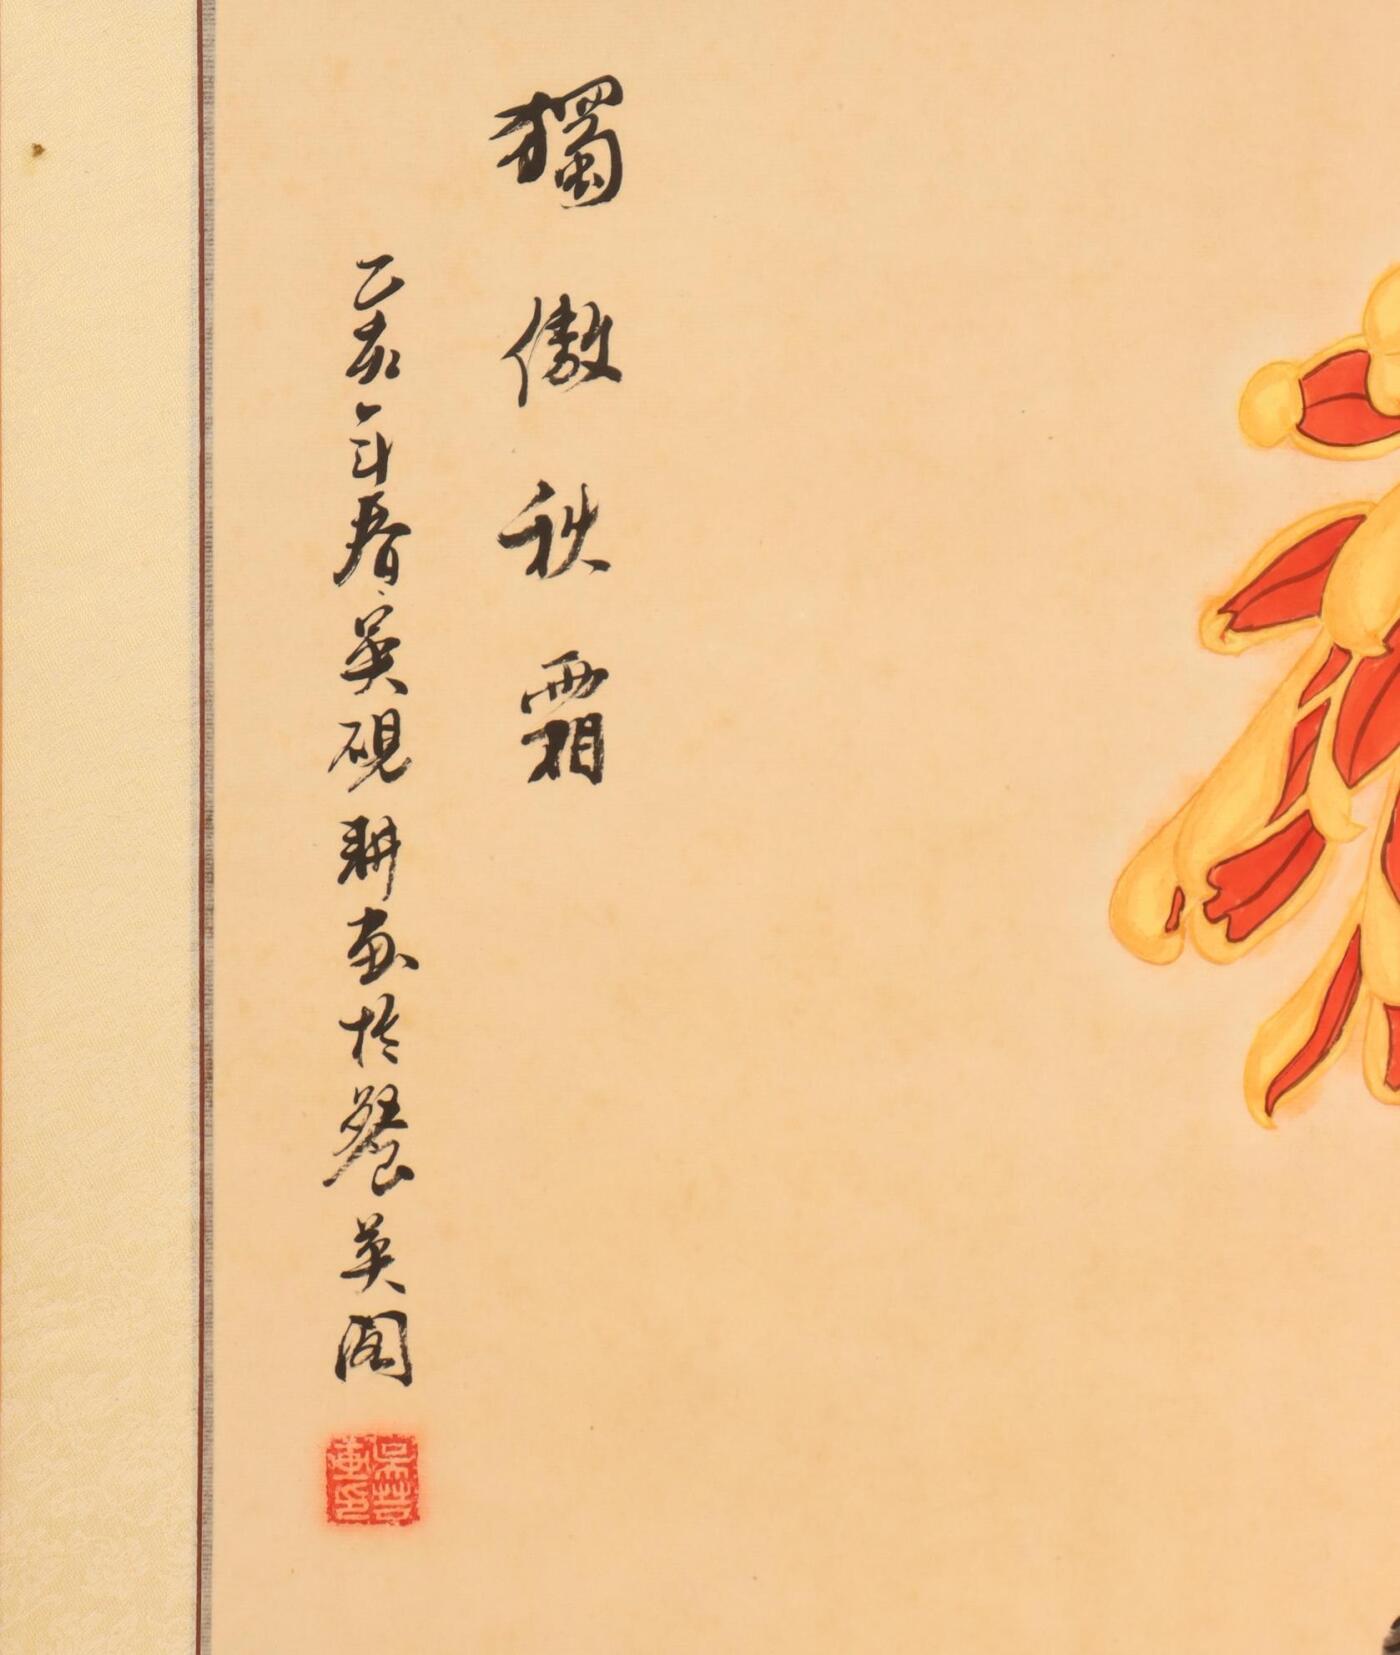 獨傲秋霜
乙亥年春英硯耕畫於餐英閣